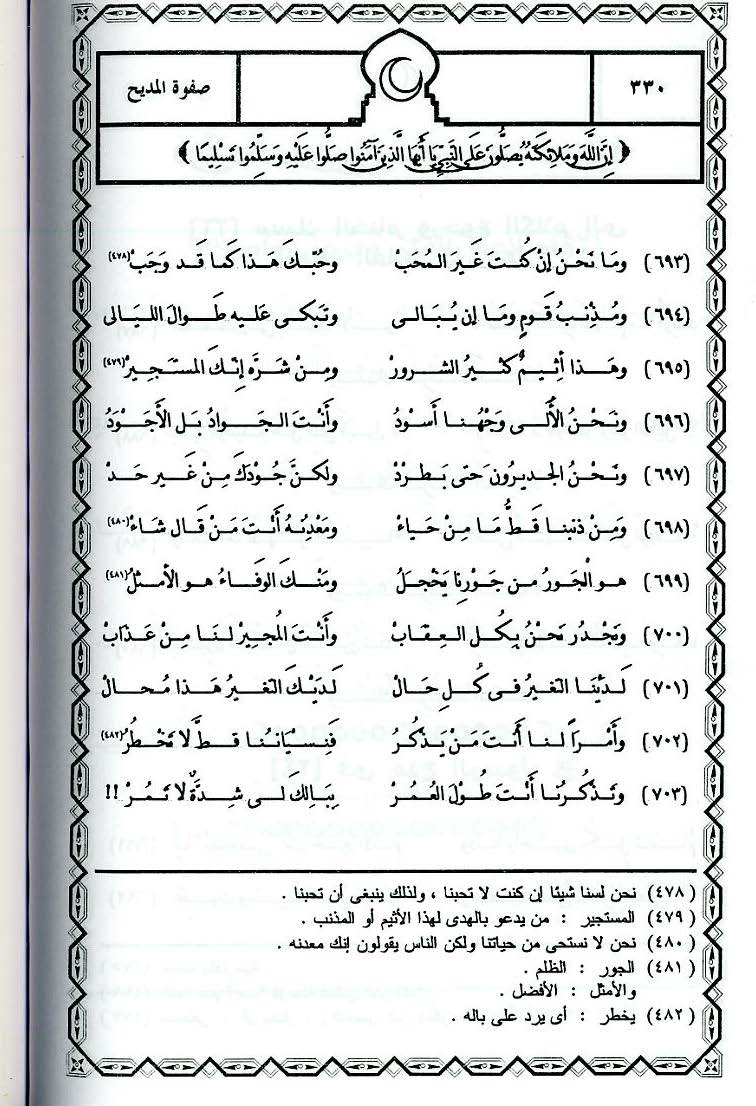 ٣٣٠
صفوة المديح
﴿ إِنَّ اللَّهَ وَمَلَائِكَتَهُ يُصَلُّونَ عَلَى النَّبِيِّ يَا أَيُّهَا الَّذِينَ آمَنُوا صَلُّوا عَلَيْهِ وَسَلِّمُوا تَسْلِيمًا ﴾
(٦٩٣) ومَا نَحْنُ إنْ كُنْتَ غَيرَ المُحبْ وحُبّكَ هَذَا كَمَا قَد وَجَبْ (٤٧٨)
(٦٩٤) ومُذْنِبُ قَومٍ ومَا إن يُبَالى وتَبكى عَليه طِوَالَ الليَالى
(٦٩٥) وهَذا أثِيمٌ كَثيرُ الشرورْ ومِنْ شَرَّه إنّكَ المُستَجيرْ (٤٧٩)
(٦٩٦) ونَحْنُ الأُلَى وَجْهُنا أسْوَدُ وأنْتَ الجَوادُ بَل الأجْوَدُ
(٦٩٧) ونَحْنُ الجديرُون حَتى بَطرْدْ ولكنَّ جُودَكَ مِنْ غَيرِ حَدْ
(٦٩٨) وَمِنْ ذنبنا قَطُّ مَا مِنْ حَياءْ ومَعْدنُهُ أنْتَ مَنْ قَال شَاءْ (٤٨٠)
(٦٩٩) هو الجَورُ مِن جَوْرِنا يَخْجلُ ومنْكَ الوفَاءُ هو الأمْثلُ (٤٨١)
(٧٠٠) ويَجْدُر نَحْنُ بِكُل العِقَابْ وأنْتَ المُجيرْ لنَا مِنْ عَذَابْ
(٧٠١) لَدَيْنَا التغيرُ فى كُل حَالْ لَدَيْكَ التغيرُ هَذا مُحالْ
(٧٠٢) وأمْرَاً لنا أنْتَ مَنْ يَذْكُرُ فَنِسْيَانُنا قَطُّ لا يَخْطُرُ (٤٨٢)
(٧٠٣) وتَذْكُرُنا أنْتَ طُوْلَ العُمُرْ بِبَالِكَ لَى شِدَّةٌ لا تَمُرْ !!
(٤٧٨) نحن لسنا شيئا إن كنت لا تحبنا ، ولذلك ينبغى أن تحبنا .
(٤٧٩) المستجير : من يدعو بالهدى لهذا الأثيم أو المذنب .
(٤٨٠) نحن لا نستحى من حياتنا ولكن الناس يقولون إنك معدنه .
(٤٨١) الجور : الظلم .
والأمثل : الأفضل .
(٤٨٢) يخطر : أى يرد على باله .